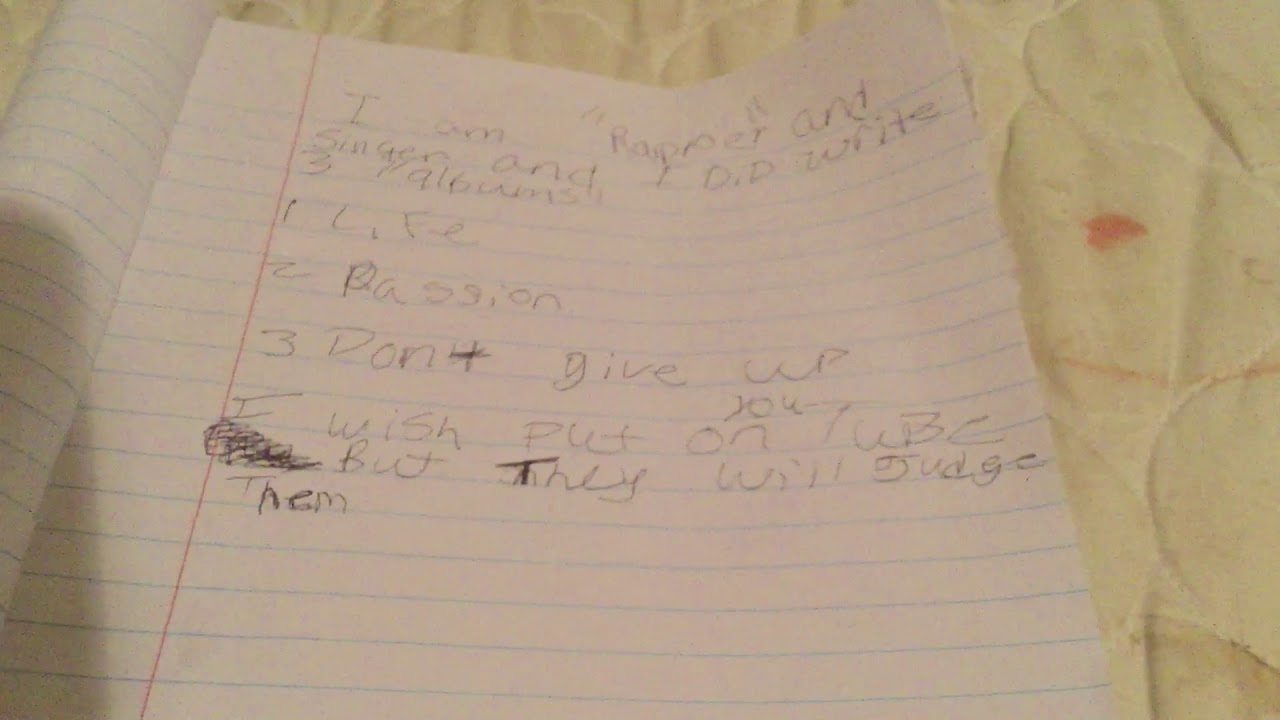 I am "Rapper" and
Singer and I D.D write
3 "albums"
1 Life
2 Passion
3 Don't give up
I wish put on you-Tube
But They will Judge
Them